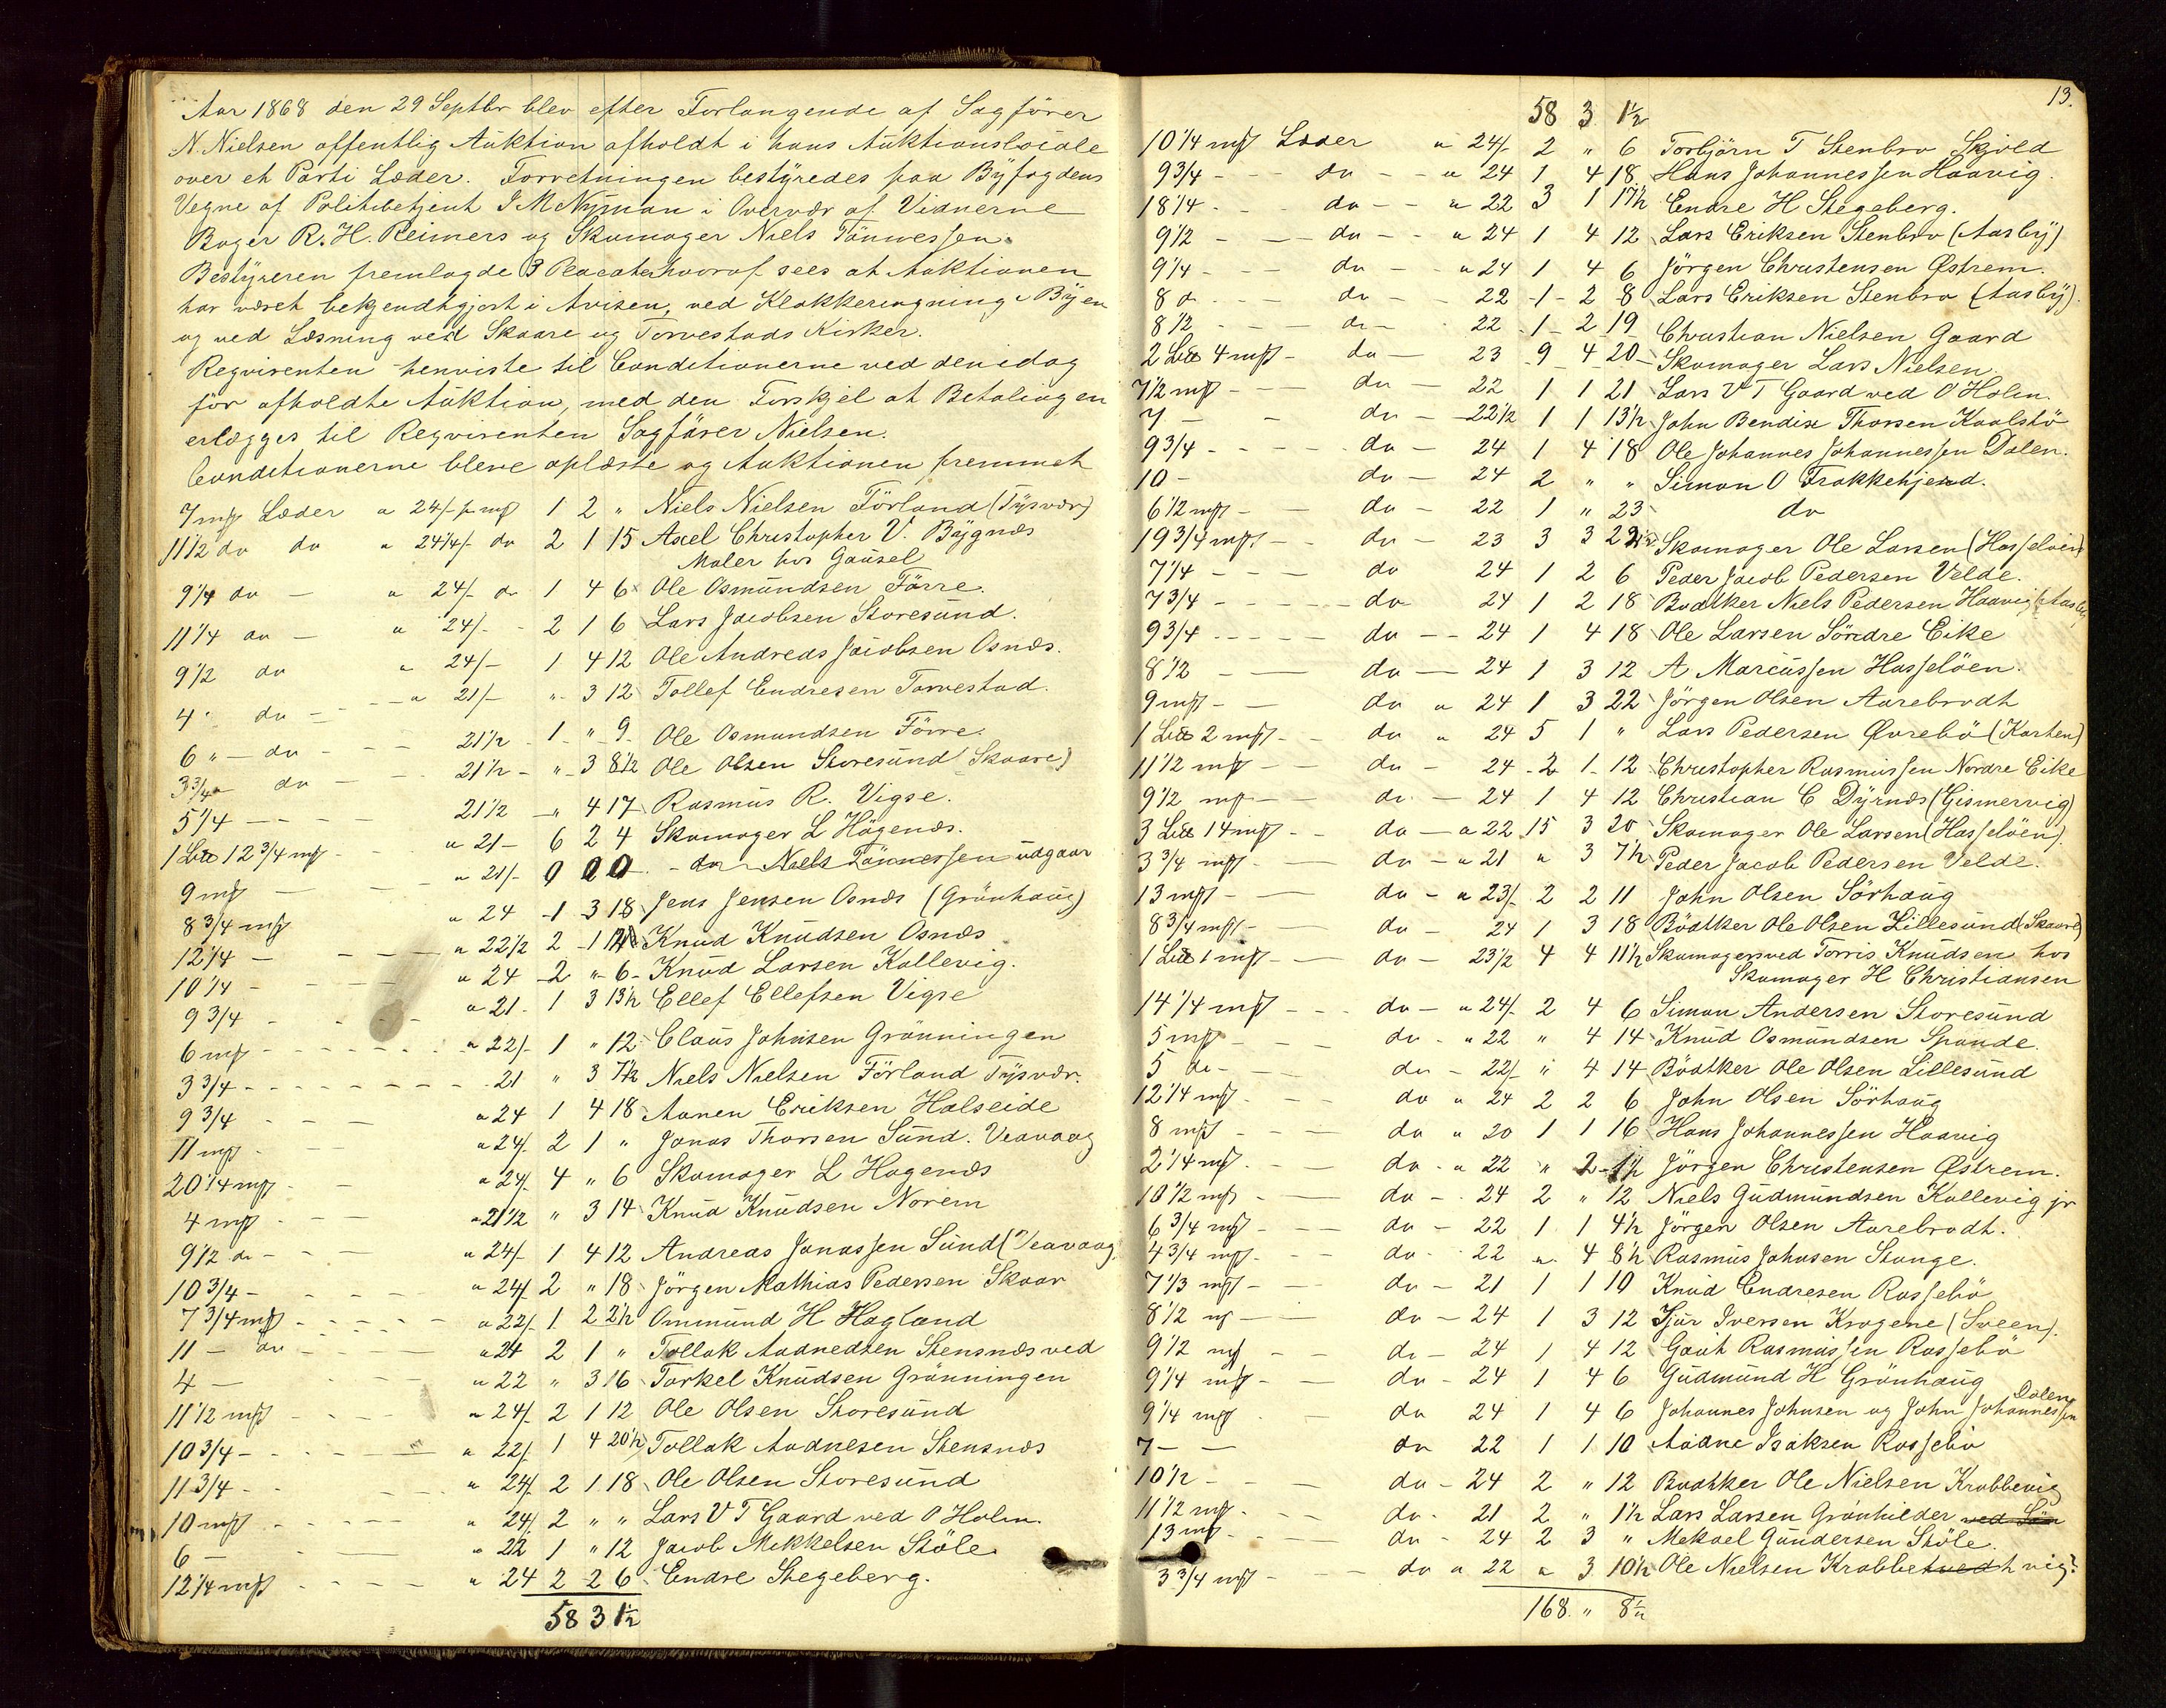 Aar 1868 den 29 Septbr blev efter Forlangende af Sagförer
N. Nielsen offentlig Auktion afholdt i hans Auktionslocale
over et Parti Læder. Forretningen bestyredes paa Byfogdens
Vegne af Politibetjent J M Nyman i Overvær af Vidnerne
Bager R. H. Reimers og Skomager Niels Tönnessen.
Bestyreren fremlagde 3 Placater hvoraf sees at Auktionen
har været bekjendtgjort i Avisen, ved Klokkeringning i Byen
og ved Læsning ved Skaare og Torvestads Kirker.
Reqvirenten henviste til Conditionerne ved den idag
för afholdte Auktion, med den Forskjel at Betalingen
erlægges til Reqvirenten Sagförer Nielsen.
Conditionerne bleve oplæste og Auktionen fremmet
7 mß Læder a 24/- pr mß 1 2 " Niels Nielsen Förland (Tysvær)
11 1/2 do do a 24 1/4/- do 2 1 15 Axel Christopher V. Bygnæs
Maler hos Gausel
9 1/4 do - a 24/- do 1 4 6 Ole Osmundsen Förre.
11 1/4 do - a 24/- - 2 1 6 Lars Jacobsen Storesund.
9 1/2 do a 24/- 1 4 12 Ole Andreas Jacobsen Osnæs.
4 " do - - a 21/- " 3 12 Tollef Endresen Torvestad.
6 " - do - - 21 1/2 1 " 9 Ole Osmundsen Förre.
3 3/4 - do - 21 1/2 - " 3 8 1/2 Ole Olsen Storesund (Skaare)
5 1/4 - - - 21 1/2 - " 4 17 Rasmus R. Vigse.
1 L℔ 12 3/4 mß - a 21 - 6 2 4 Skomager L Högenæs.
9 mß - - a 21/- 0 0 0 - do Niels Tönnessen udgaar
8 3/4 mß a 24 - 1 3 18 Jens Jensen Osnæs (Grönhaug)
12 1/4 - - - a 22 1/2 2 - 1 Knud Knudsen Osnæs
10 1/4 - - - a 24 - 2 " 6 - Knud Larsen Kallevig.
9 3/4 - - - a 21 - 1 3 13 1/2 Ellef Ellefsen Vigse
6 mß - - - a 22/- 1 " 12 Claus Johnsen Grönningen
3 3/4 - - - 21 " 3 7 1/2 Niels Nielsen Förland Tysvær.
9 3/4 - - - a 24 1 4 18 Aanen Eriksen Halseide
11 mß - - a 24/- 2 1 " Jonas Thorsen Sund. Veavaag
20 1/4 mß - - a 24/- 4 " 6 Skomager L Hagenæs
4 mß - - a 21 1/2 " 3 14 Knud Knudsen Norem
9 1/2 do - - a 24/- 1 4 12 Andreas Jonassen Sund (Veavaag)
10 3/4 - - - a 24/- 2 " 18 Jörgen Mathias Pedersen Skaar
7 3/4 mß - - - a 22/- 1 2 2 1/2 Ommund H Hagland
11 - do - - a 24 2 1 " Tollak Aadnedsen Stensnæs ved
4 - - - a 22 " 3 16 Torkel Knudsen Grönningen
11 1/2 mß - - - a 24/- 2 1 12 Ole Olsen Storesund
10 3/4 - - - a 22/- 1 4 20 1/2 Tollak Aadnesen Stensnæs
11 3/4 - - - a 24/- 2 1 18 Ole Olsen Storesund
10 mß - - - a 24/- 2 " " Lars V T Gaard ved O Holm.
6 - - - a 22 1 " 12 Jacob Mikkelsen Stöle
12 1/4 mß - - - a 24 2 2 6 Endre Stegeberg.
58 3 1 1/2
13.
58 3 1 1/2
10 1/4 mß Læder a 24/- 2 " 6 Torbjörn T Stenbro Skjold
9 3/4 - - do - - a 24 1 4 18 Hans Johannessen Haavig.
18 1/4 - - do - - a 22 3 1 17 1/2 Endre H Stegeberg.
9 1/2 - - do - - a 24 1 4 12 Lars Eriksen Stenbro (Aasby)
9 1/4 - - do - a 24 1 4 6 Jörgen Christensen Østrem.
8 do - - do - 22 - 1 - 2 8 Lars Eriksen Stenbro (Aasby).
8 1/2 - - do - 22 - 1 - 2 19 Christian Nielsen Gaard
2 L℔ 4 mß - do - 23 9 4 20 - Skomager Lars Nielsen.
7 1/2 mß - - do - 22 1 1 21 Lars V T Gaard ved O Holm.
7 - - do - 22 1/2 1 1 13 1/2 John Bendix Thorsen Kaalstö
9 3/4 - - - do - 24 1 4 18 Ole Johannes Johannessen Dalen.
10 - do - 24 2 " " Simon O Frakkehjend.
6 1/2 mß - - do - 22 1 " 23 do
19 3/4 mß - - do - 23 3 3 Skomager Ole Larsen (Hasseløen)
7 1/4 - - do 24 1 2 6 Peder Jacob Pedersen Velde.
7 3/4 - - - do 24 1 2 18 Bödtker Niels Pedersen Haavig (Aasby
9 3/4 - - - do - - 24 1 4 18 Ole Larsen Söndre Eike
8 1/2 - - do - 24 1 3 12 A Marcussen Hasselöen.
9 mß - - do a 24 1 3 22 Jörgen Olsen Aarebrodt
1 L℔ 2 mß - - do a 24 5 1 " Lars Pedersen Øvrebö (Karten)
11 1/2 mß - - do - 24 - 2 1 - 12 Christopher Rasmussen Nordre Eike
9 1/2 mß - - do - 24 1 4 12 Christian C Dyrnæs (Gismervig)
3 L℔ 14 mß - - do - a 22 15 3 20 Skomager Ole Larsen (Hasselöen).
3 3/4 mß - - do - a 21 " 3 7 1/2 Peder Jacob Pedersen Velde.
13 mß - - do - a 23/- 2 2 11 John Olsen Sörhaug
8 3/4 mß - - do - 24 1 3 18 Bödtker Ole Olsen Lillesund (Skaare)
1 L℔ 1 mß - - do - 23 1/2 4 4 11 1/2 Skomagersvend Torris Knudsen hos
Skomager H Christiansen
14 1/4 mß - - do - a 24/- 2 4 6 Simon Andersen Storesund
5 mß - - do - a 22 " 4 14 Knud Osmundsen Spande.
5 do - - do - 22/- " 4 14 Bödtker Ole Olsen Lillesund
12 1/4 mß - - do a 24 2 2 6 John Olsen Sörhaug
8 mß - - do a 20 1 1 16 Hans Johannessen Haavig
2 1/4 mß - - do - a 22 " 2 - 1 1/2 Jörgen Christensen Østrem.
10 1/2 mß - - do - 24 2 " 12 Niels Gudmundsen Kallevig jr
6 3/4 mß - - do - 22 1 1 4 1/2 Jörgen Olsen Aarebrodt.
4 3/4 mß - - do - 22 " 4 8 1/2 Rasmus Johnsen Stange.
7 1/3 mß - - do - 21 1 1 10 Knud Endresen Rossebö
8 1/2 mß - - do - 24 1 3 12 Sjur Iversen Krogene (Sveen).
9 1/2 mß - - do - 24 1 4 12 Gaut Rasmussen Rossebö
9 1/4 mß - - do - 24 1 4 6 Gudmund H Grönhaug
9 1/4 mß - do 24 1 4 6 Johannes Johnsen og John Johannessen Dalen
7 - - do 22 1 1 10 Aadne Isaksen Rossebö
10 1/2 - - do - 24 2 " 12 Bödtker Ole Nielsen Krabbevig
11 1/2 mß - - do - 21 2 " 1 1/2 Lars Larsen Grönhilder ved
13 mß - - do - 24 2 3 " Mekael Gundersen Stöle.
3 3/4 mß - - do a 22 " 3 10 1/2 Ole Nielsen Krabbe vig
168 " 8 1/2